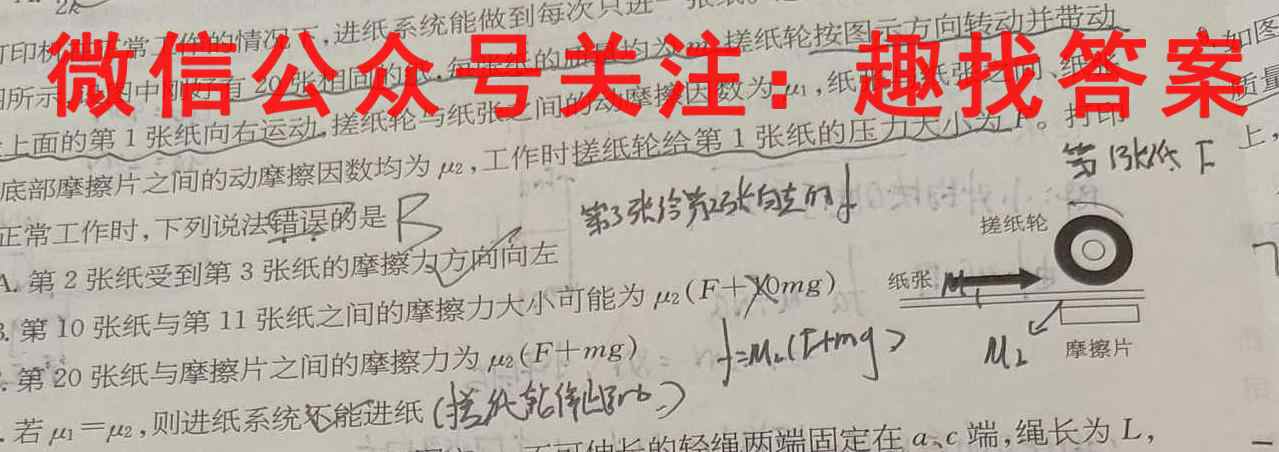 2k
打印机正常工作的情况下,进纸系统能做到每次只进一张纸。
图所示,图中刚好有20张相同的纸,每张纸的质量均为m,搓纸轮按图示方向转动并带动
最上面的第1张纸向右运动,搓纸轮与纸张之间的动摩擦因数为μ₁,纸张与纸张之间、纸张
底部摩擦片之间的动摩擦因数均为μ₂,工作时搓纸轮给第1张纸的压力大小为F。打印
正常工作时,下列说法错误的是 B
A. 第2张纸受到第3张纸的摩擦力方向向左
B. 第10张纸与第11张纸之间的摩擦力大小可能为μ₂(F+10mg)
. 第20张纸与摩擦片之间的摩擦力为μ₂(F+mg)
. 若μ₁=μ₂,则进纸系统不能进纸
不可伸长的轻绳两端固定在a、c端,绳长为L,
微信公众号关注:趣找答案
第3张给第2张向左的f
f=μ₂(F+mg)
第1张纸 F
搓纸轮
纸张 μ₁
μ₂
摩擦片
如图
质量
上,